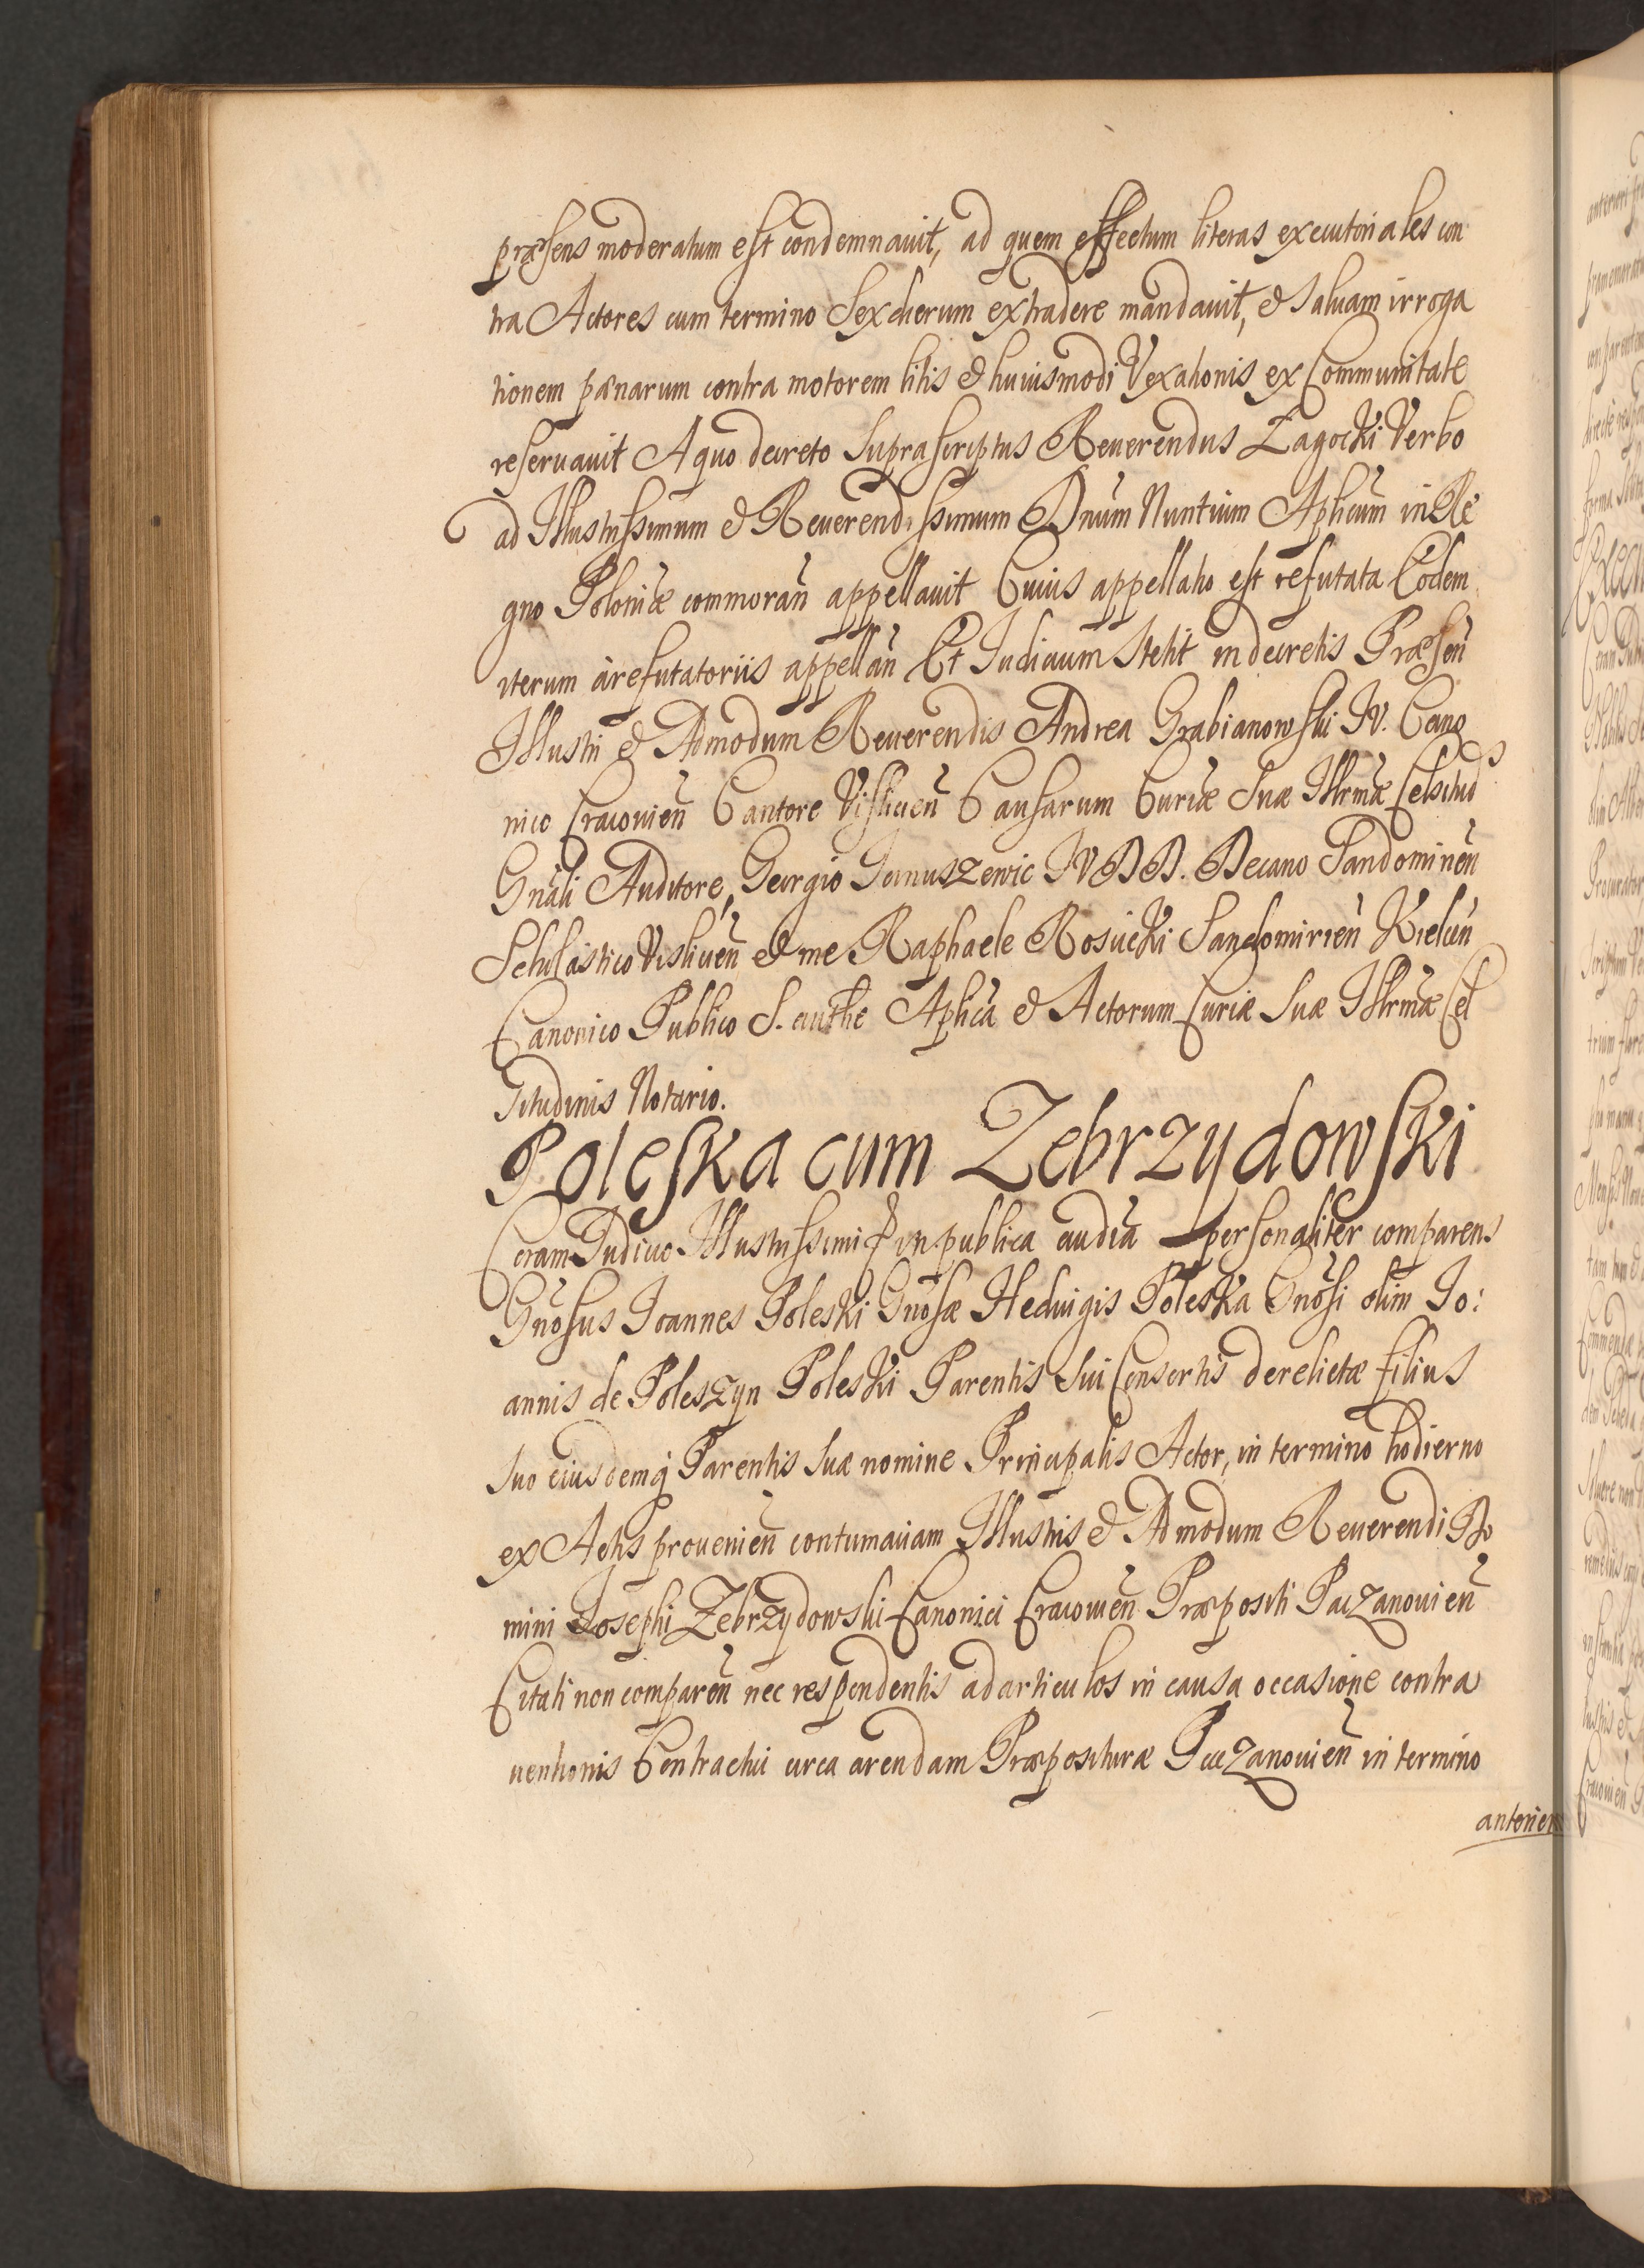 præsens moderatum est condemnauit, ad quem effectum literas executoriales con
tra Actores cum termino Sex dierum extradere mandauit, & saluam irroga
tionem pænarum contra motorem litis & huiusmodi Vexationis ex Communitate
reseruauit A quo decreto suprascriptus Reuerendus Zagocki Verbo
ad Illustrissimum & Reuerendissimum Dnum Nuntium Aplicum in Re
gno Poloniæ commoran̄ appellauit Cuius appellatio est refutata Eodem
iterum à refutatoriis appellan̄ Et Iudicium Stetit in decretis Præsen̄
Illustri & Admodum Reuerendis Andrea Grabianowski IV. Cano
nico Cracouien̄ Cantore Visliciēn Causarum Curiæ Suæ Illrmæ Celsitud
Gnāli Auditore, Georgio Ianuszewic IVDD. Decano Sandominen̄
Scholastico Vislicēn & me Raphaele Rosucki Sandomirien̄ Kielcēn
Canonico Publico S. authe Aplicā & Actorum Curiæ Suæ Illrmæ Cel
situdinis Notario.
Poleska cum Zebrzydowski
Coram Iudicio Illustrissimi in publica audiā personaliter comparens
Gnōsus Ioannes Poleski Gnōsæ Heduigis Poleska Gnōsi olim Io:
annis de Poleszyn Poleski Parentis Sui Consortis derelictæ filius
suo eiusdemq́ Parentis suæ nomine Principalis Actor, in termino hodierno
ex Actis prouenien̄ contumaciam Illustris & Admodum Reuerendi Do
mini Iosephi Zebrzydowski Canonici Cracouien̄ Præpositi Paczanouien̄
Citati non comparen̄ nec respondentis ad articulos in causa occasione contra
uentionis Contractui circa arendam Præposituræ Paczanouien̄ in termino